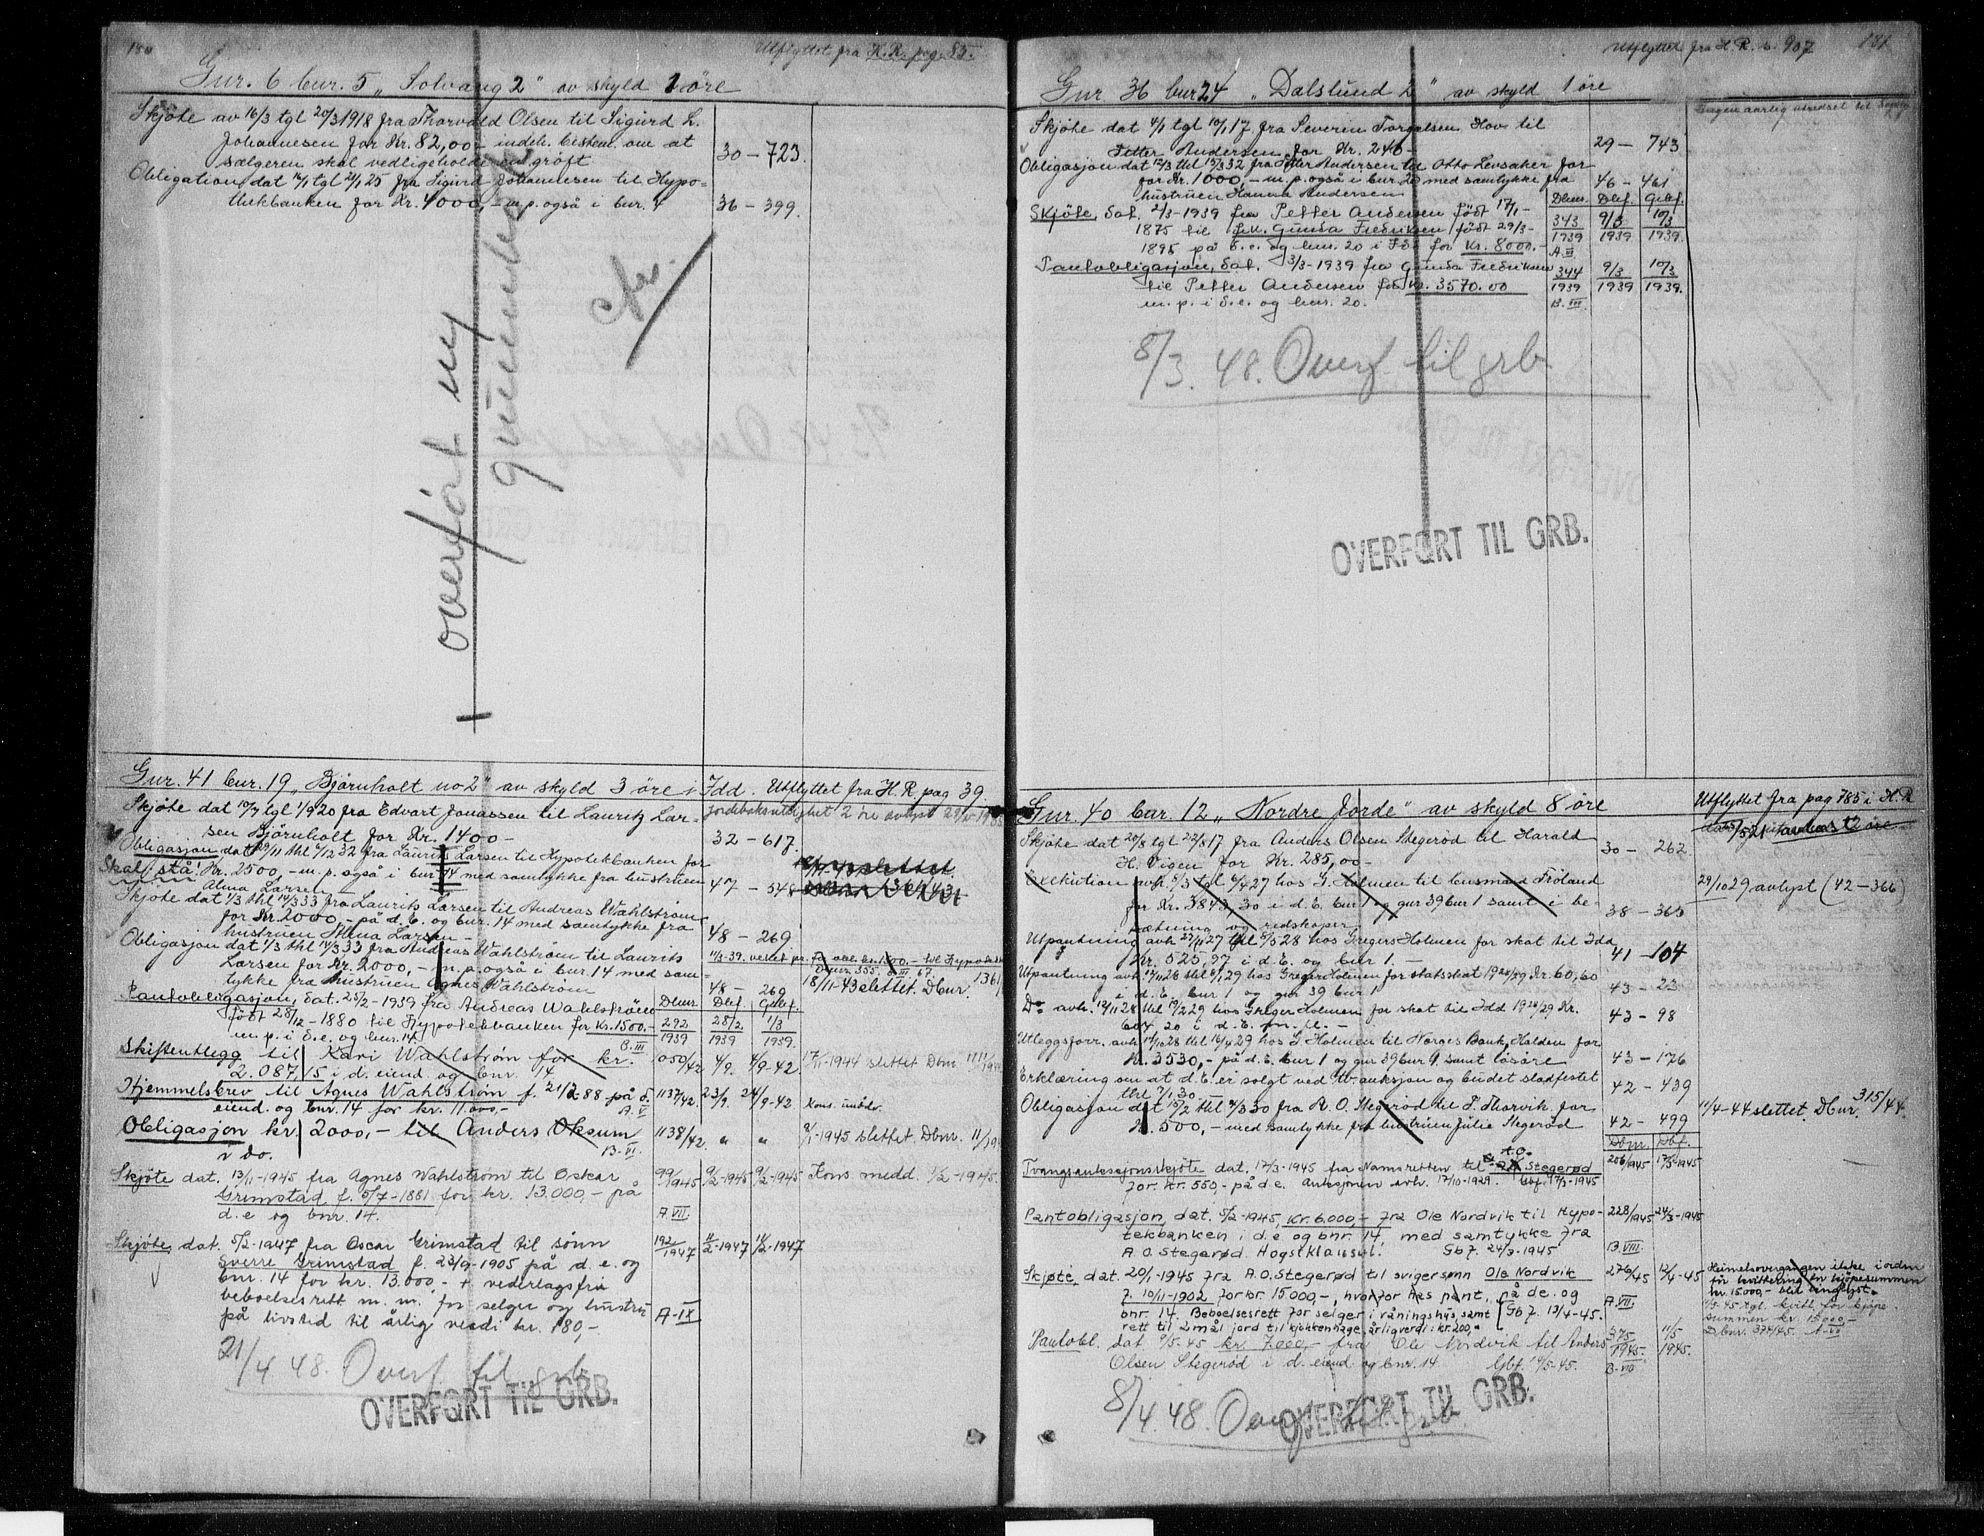 180
Utflyttet fra H.R. pag. 85.
Gnr. 6 bnr. 5 „Solvang 2" av skyld 1 öre
Skjöte av 16/3 tgl 20/3 1918 fra Thorvald Olsen til Sigurd L.
Johannesen for Kr. 82,00 - indeh. bestem. om at
sælgeren skal vedligeholde en gröft
30 - 723.
Obligation dat tgl 25 fra Sigurd Johannesen til Hypo-
thekbanken for Kr. 4000,- m.p. også i bnr. 4
36 - 399.
overfört ny
Gnr. 41 bnr. 19 „Björnholt no 2" av skyld 3 öre i Idd. Utflyttet fra H.R pag 39
Skjöte dat tgl 1/9 20 fra Edvart Jonassen til Lauritz Lar-
sen Björnholt for Kr. 1400 -
32 - 617.
Obligasjon dat 29/11 thl 6/12 32 fra Laurits Larsen til Hypotekbanken for
Skal stå! Kr. 2500,- m.p. også i bnr 14 med samtykke fra hustruen
Alma Larsen
47 - 548
Skjöte dat 1/3 thl 14/3 33 fra Laurits Larsen til Andreas Wahlström
for Kr. 2000,- på d.E. og bnr. 14 med samtykke fra
hustruen Alma Larsen -
48 - 269
Obligasjon dat 1/3 thl 14/3 33 fra Andreas Wahlström til Laurits
Larsen for Kr. 2000,- m.p. også i bnr. 14 med sam-
tykke fra hustruen Agnes Wahlström
48 - 269
18/11-43 slettet. Dbnr. 1361
Pantobligasjon, dat. 25/2 - 1939 fra Andreas Wahlström
født 28/12 - 1880 til Hypotekbanken for kr. 1500,-
m.p. i d.e. og bnr. 14. B.III
Dbnr. Dbf. Grbf.
292/1939 28/2 1939 1/3 1939.
Skifteutlegg til Kari Wahlstrøm for kr.
2.087,15 i d. eiend. og bnr. 14
1050/42 4/9. 4/9-42 17/11 1944 slettet Dbnr.
Hjemmelsbrev til Agnes Wahlstrøm f. 21/2-88 på d.
eiend. og bnr. 14 for kr. 11.000,- A.V
1137/42. 23/9. 24/9-42 Kons. innbr.
Obligasjon kr. 2000,- til Anders Oksum
i do. B.VI.
1138/42 " " 9/1-1945 slettet Dbnr. 11/194
Skjöte dat. 13/11-1945 fra Agnes Wahlstrøm til Oskar
Grimstad f. 5/7-1881 for kr. 13.000,- på
d.e og bnr. 14.
99/1945 9/2-1945 9/2-1945 Kons. medd. 1/2-1945.
A.VII.
Skjöte, dat. 5/2-1947 fra Oscar Grimstad til sønn
Sverre Grimstad f. 23/9-1905 på d.e. og
bnr. 14 for kr. 13.000,- + vederlagsfri
beboelsesrett m.m. for selger og hustru
på livstid til årlig verdi kr. 180,-
192/1947 11/2-1947 14/2-1947
A-IX
21/4 48. Overf. til grb.
OVERFØRT TIL GRB.
Utflyttet fra H.R. s. 907
181
Gnr. 36 bnr 24 „Dalslund 2" av skyld 1 öre
Skjöte dat 4/1 tgl 10/1 17 fra Severin Torgelsen Hov til
Petter Andersen for Kr. 240
29 - 743
Obligasjon dat 12/3 thl 15/3 32 fra Petter Andersen til Otto Levsaker for
for Kr. 1000,- m.p. også i bnr. 20 med samtykke fra
hustruen Hanna Andersen
46 - 461
Dbnr. Dbf. Grbf.
Skjöte, dat. 2/3-1939 fra Petter Andersen født 17/1-
1875 til frk. Gunda Fredriksen født 29/3-
1895 på d.e. og bnr. 20 i Idd for kr. 8000.-
343/1939 9/3 1939 10/3 1939.
A.VI
Pantobligasjon, dat. 3/3-1939 fra Gunda Fredriksen
til Petter Andersen for kr. 3570.00
m.p. i d.e. og bnr. 20.
344/1939 9/3 1939 10/3 1939.
B.III.
8/3. 48. Overf. til grb.
OVERFØRT TIL GRB.
Gnr. 40 bnr. 12 „Nordre Jorde" av skyld 8 öre
Utflyttet fra pag 785 i H.R
Skjöte dat 20/8 tgl 22/8 17 fra Anders Olsen Stegeröd til Harald
H. Vigen for Kr. 285,00 -
30 - 262
Exekution avh. 5/3 tgl 6/4 27 hos G. Holmen til busmand Fröland
for Kr. 3843,30 i d.E. bnr 1 og gnr 39 bnr 1 samt i be-
sætning og redskaper
38 - 363
29/10 29 avlyst (42 - 366)
Utpantning avh 27/11 27 thl 8/5 28 hos Gregers Holmen for skat til Idd
Kr. 525,97 i d.E. og bnr 1. -
41 - 104
Utpantning avh. 17/11 28 thl 6/1 29 hos Greger Holmen for statsskat 1928/29 Kr. 60,60
i d.E. bnr 1 og gnr 39 bnr 1
43 - 23
Do avh. 12/11 28 thl 19/2 29 hos Greger Holmen for skat til Idd 1928/29 Kr.
604,20 i d.E. m.fl. -
43 - 98
Utleggsforr. avh 11/10 28 thl 16/4 29 hos G. Holmen til Norges Bank, Halden for
Kr. 3530,- på d.E. bnr 1 og gnr 39 bnr 9 samt lösöre
43 - 176
Erklæring om at d.E. er solgt ved tv.auksjon og budet stadfestet
thl 7/1 30.
42 - 439
Obligasjon dat 15/2 thl 4/3 30 fra A.O. Stegeröd til P. Thorvik for
Kr. 500,- med samtykke fra hustruen Julie Stegeröd
42 - 499
11/4-44 slettet. Dbnr. 315/44.
Dbnr. Dbf.
Tvangsauksjonsskjöte dat. 17/3-1945 fra Namsretten til A.O. Stegerød
for kr. 550,- på d.e. Auksjonen avh. 17/10-1929. Gbf. 17/3-1945
206/1945 17/3-1945
Pantobligasjon, dat. 5/2-1945, kr. 6.000,- fra Ole Nordvik til Hypo-
tekbanken i d.e og bnr. 14, med samtykke fra
A.O. Stegarød. Hogstklausul. Gbf. 24/3-1945
228/1945 24/3-1945
B.VIII.
Skjøte, dat. 20/1-1945 fra A.O. Stegerød til svigersønn Ole Nordvik
f. 10/11-1902 for kr 15.000,-, hvorfor Aas pant, på d.e. og
bnr. 14. Beboelsesrett for selger i våningshus samt
rett til 2 mål jord til kjøkkenhage, årlig verdi kr. 200,- Gbf. 13/4-45.
276/45 12/4-45
A.VII.
Heimelsovergangen ikke i orden
før kvittering for kjøpesummen
kr. 15000,- blir tinglyst.
11/5-45 tgl. kvitt. for kjøpe
summen kr. 15000,-
Dbnr. 374/45. A-VII
Pantobl. dat 9/5-45 kr. 7.000,- fra Ole Nordvik til Anders
Olsen Stegerød i d. eiend og bnr. 14. Gbf. 14/5-45.
375/1945. 11/5 1945.
B-VIII
8/4. 48. Overf. til grb.
OVERFØRT TIL GRB.